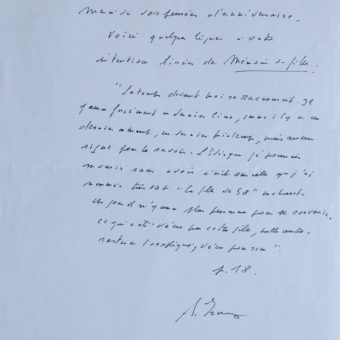 Merci de vos pensées d'anniversaire.
Voici quelques lignes à votre
intention tirées de Mémoire de fille.
"Le temps devant moi se raccourcit. Il y
aura forcément un dernier livre, comme il y a un
dernier amant, un dernier printemps, mais aucun
signe pour le savoir. L'idée que je pourrais
mourir sans avoir écrit sur celle que j'ai
nommée très tôt « la fille de 58 » me hante.
Un jour il n'y aura plus personne pour se souvenir.
Ce qui a été vécu par cette fille, nulle autre,
restera inexpliqué, vécu pour rien".
p. 18.